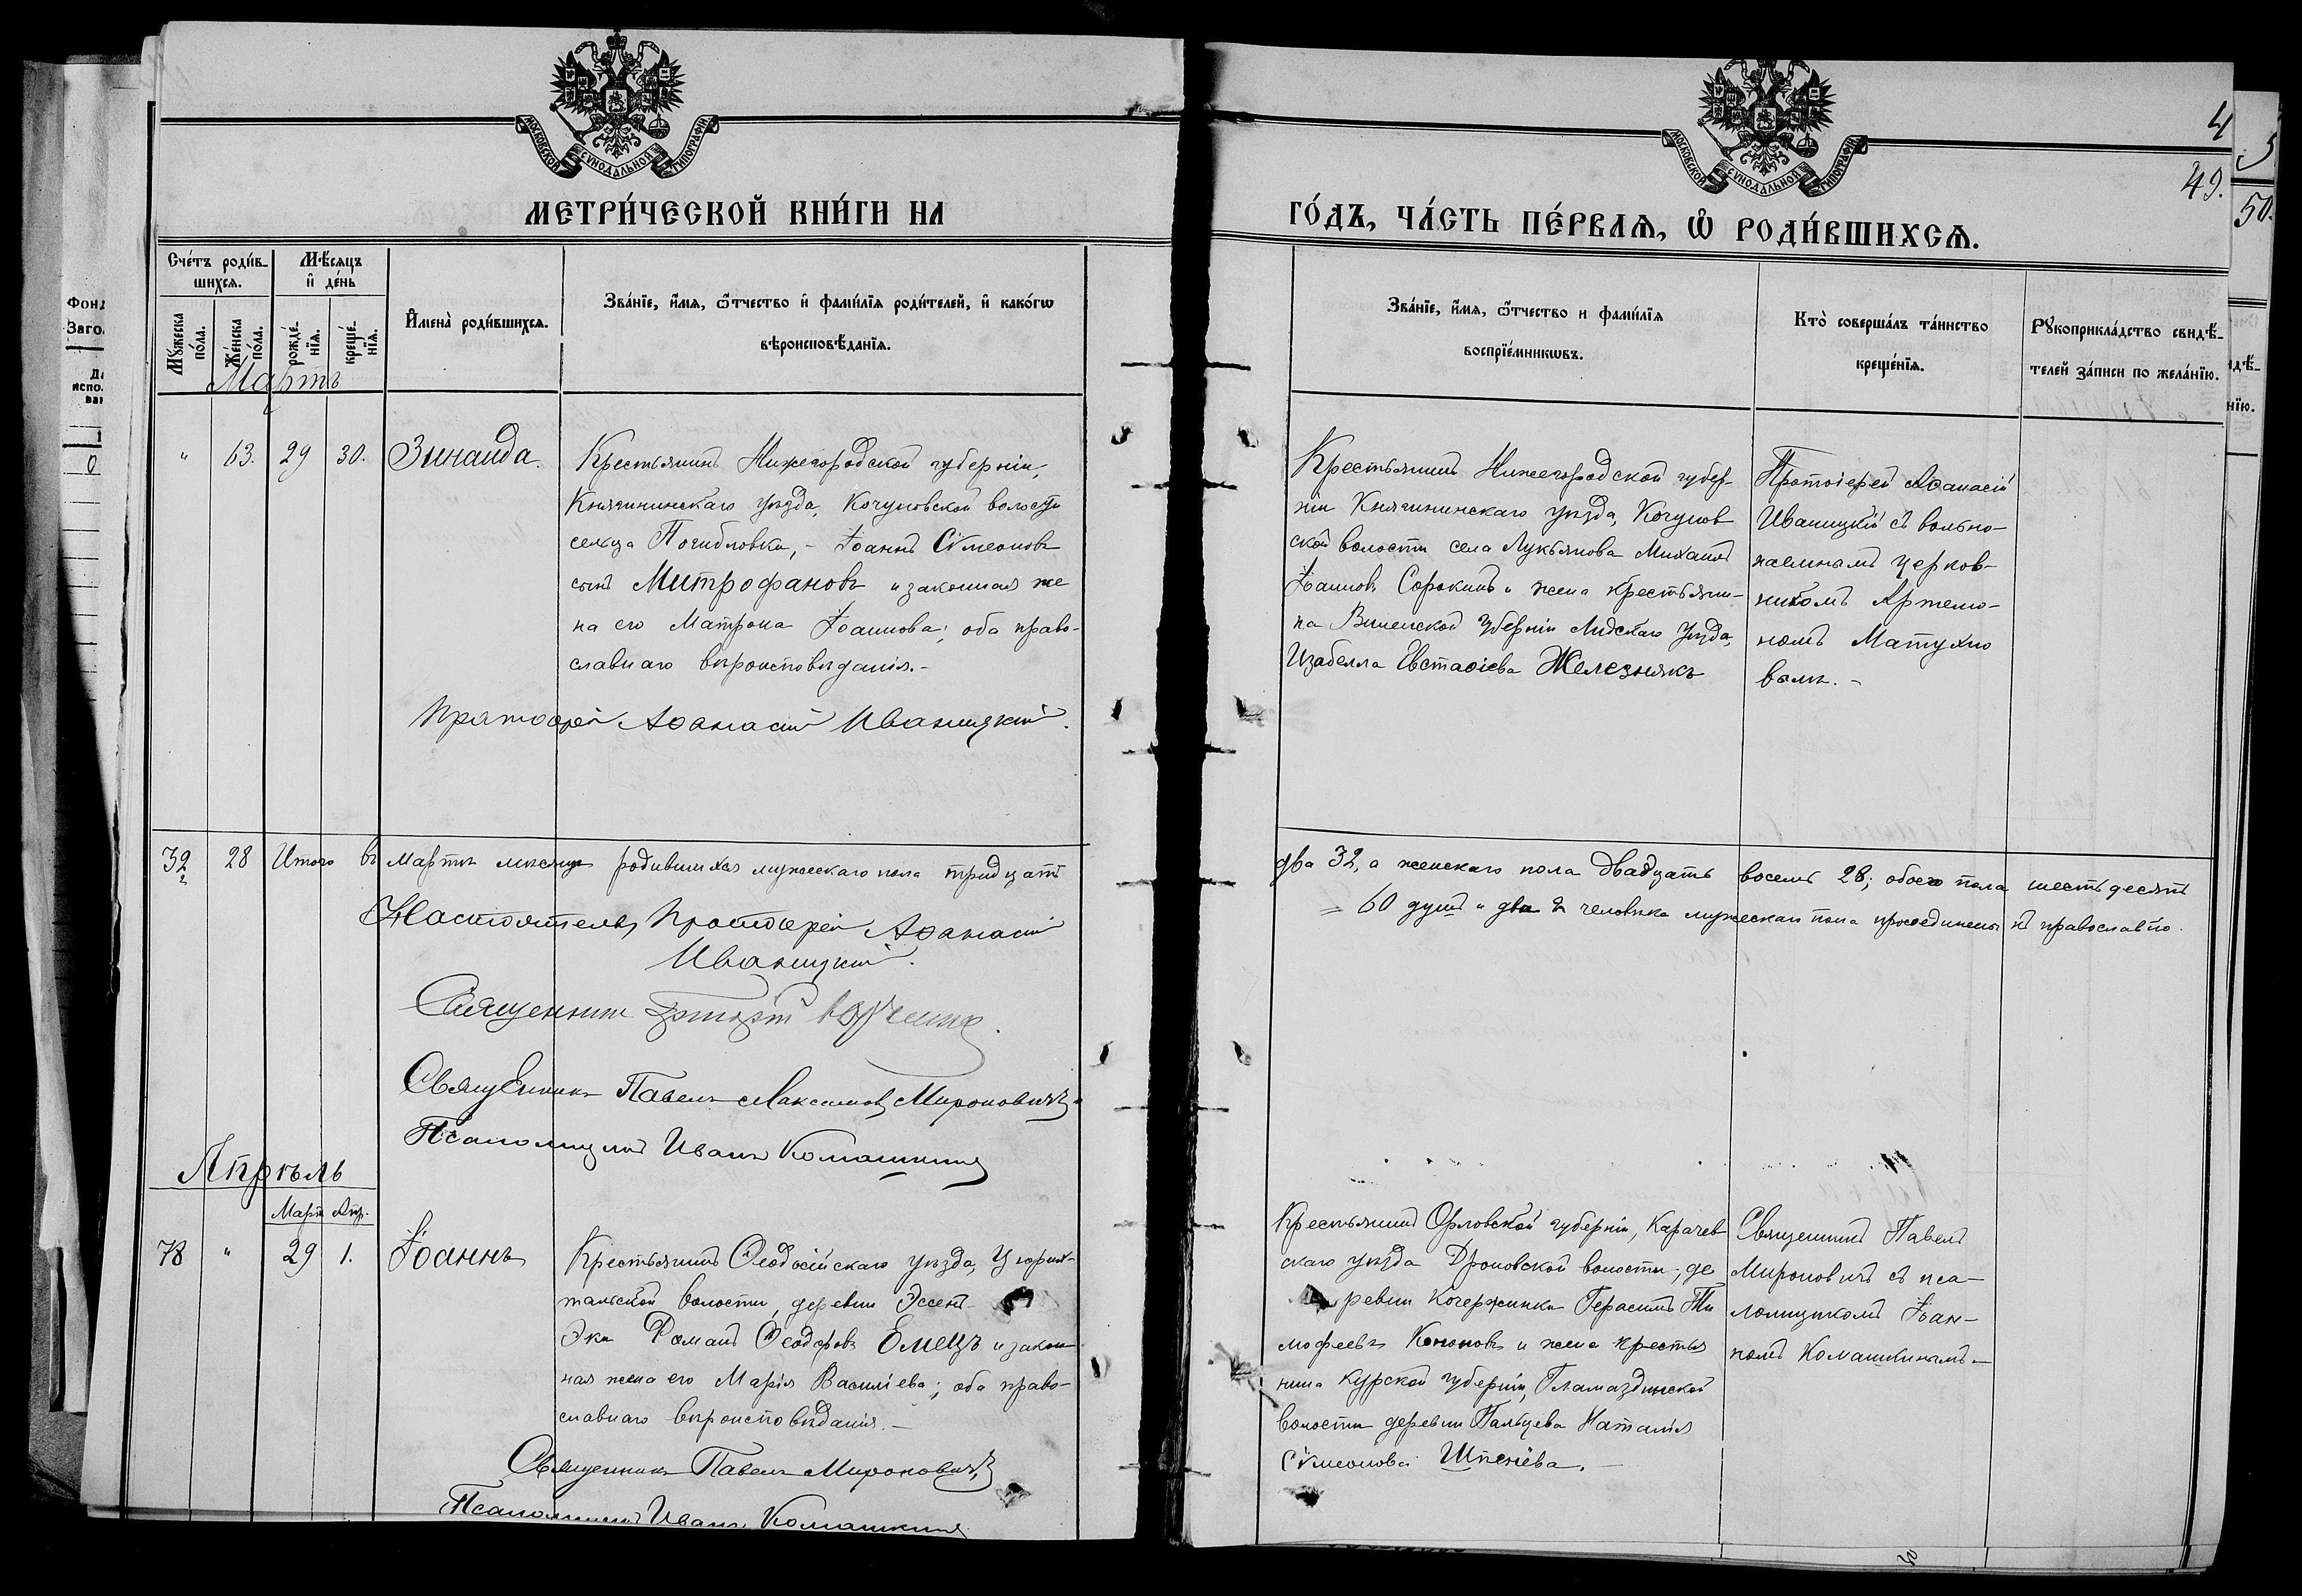 МОСКОВСКОЙ СѴНОДАЛЬНОЙ ТИПОГРАФІИ
МЕТРИ́ЧЕСКОЙ КНИ́ГИ НА
Сче́тъ роди́в-
шихсѧ.
Мѣ́сѧцъ
и҆ де́нь
Мꙋ́жеска
по́ла.
Же́нска
по́ла.
рожде́-
нїѧ.
креще́-
нїѧ.
И҆мена̀ роди́вшихсѧ.
Зва́нїе, и҆́мѧ, ѻ҆́тчество и҆ фами́лїѧ роди́телей, и҆ како́гѡ
вѣроисповѣ́данїѧ.
Мартъ
" 63. 29 30. Зинаида.
Крестьянинъ Нижегородской губерніи,
Княгининскаго уѣзда, Кочуновской волости
сельца Погибловки, - Іоаннъ Сѵмеоновъ
сынъ Митрофановъ и законная же
на его Матрона Іоаннова; оба право-
славнаго вѣроисповѣданія.-
Протоіерей Аѳанасій Иваницкій.
32 28 Итого въ Мартѣ мѣсяцѣ родившихся мужескаго пола тридцать
Настоятель, Протоіерей Аѳанасій
Иваницкій.
Священникъ
Священникъ Павелъ Максимовъ Мироновичъ
Псаломщикъ Иванъ Комашкинъ
Апрѣль
Март Апр.
78 " 29 1. Іоаннъ
Крестьянинъ Ѳеодосійскаго уѣзда, Цюрих-
тальской волости, деревни Эссенъ-
Эки Романъ Ѳеодоровъ Емецъ и закон
ная жена его Марія Васильева; оба право-
славнаго вѣроисповѣданія.-
Священникъ Павелъ Мироновичъ
Псаломщикъ Иванъ Комашкинъ
МОСКОВСКОЙ СѴНОДАЛЬНОЙ ТИПОГРАФІИ
4
49.
ГО́ДЪ, ЧА́СТЬ ПЕ́РВАѦ, Ѡ҆ РОДИ́ВШИХСѦ.
Зва́нїе, и҆́мѧ, ѻ҆́тчество и фами́лїѧ
воспрїе́мникѡвъ.
Кто̀ соверша́лъ та́инство
креще́нїѧ.
Рꙋкоприкла́дство свидѣ́-
телей за́писи по жела́нїю.
Крестьянинъ Нижегородской губер-
ніи Княгининскаго уѣзда, Кочунов
ской волости села Лукьянова Михаилъ
Іоанновъ Сорокинъ и жена крестьяни-
на Виленской губерніи Лидскаго уѣзда,
Изабелла Евстаѳіева Железнякъ
Протоіерей Аѳанасій
Иваницкій съ вольно-
наемнымъ церков-
никомъ Артемо-
номъ Матухно
вымъ. -
два 32, а женскаго пола двадцать восемь 28; обоего пола шестьдесятъ
= 60 душъ и два 2 человѣка мужескаго пола присоединены къ православію.
Крестьянинъ Орловской губерніи, Карачев
скаго уѣзда Дроновской волости, де
ревни Кочержинки Герасимъ Ти
мофеевъ Кононовъ и жена крестья
нина Курской губерніи, Гламаздинской
волости деревни Пальцева Наталія
Сѵмеонова Шпенёва. -
Священникъ Павелъ
Мироновичъ съ пса-
ломщикомъ Іоан-
номъ Комашкинымъ.-
5
50.